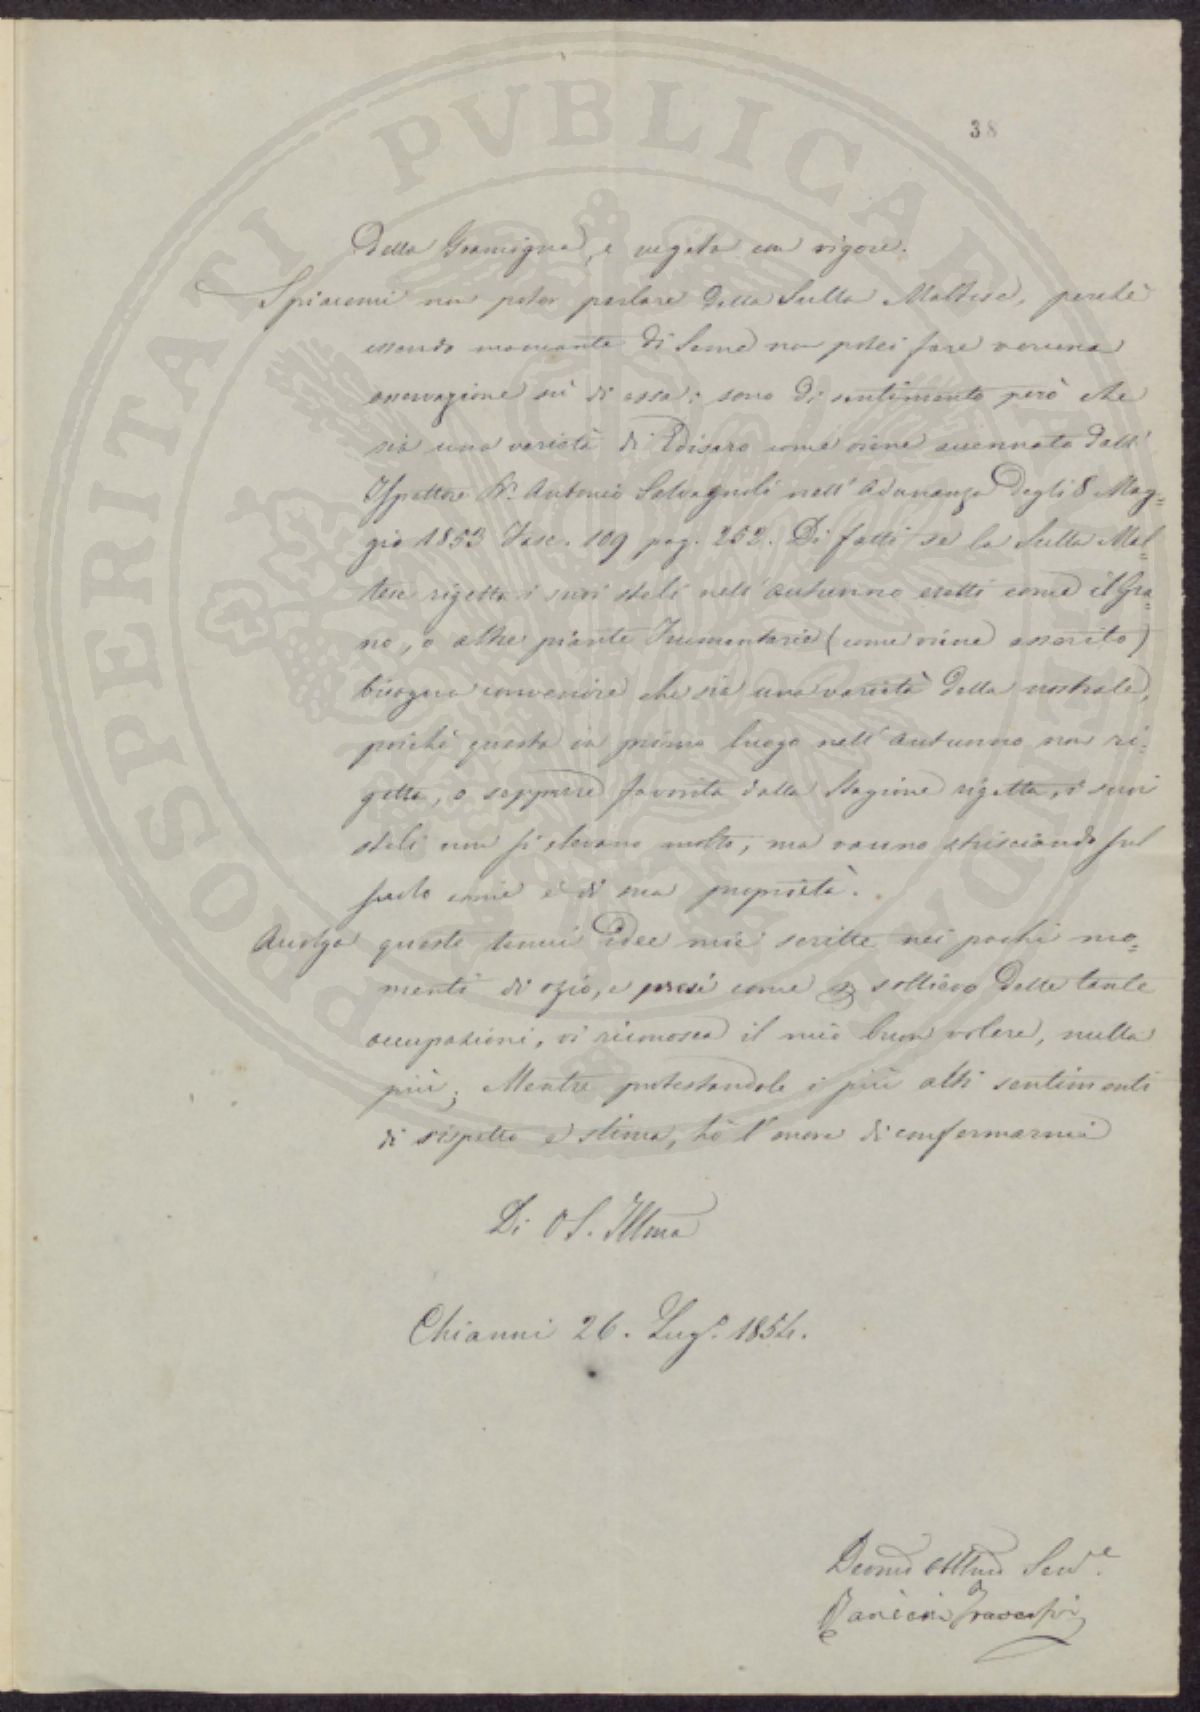 38
Della Gramigna, e vegeta con vigore.
Spiacemi non poter parlare della Sulla Maltese, perchè
essendo mancante di Seme non potei fare veruna
osservazione sù di essa: sono di sentimento però che
sia una varietà di Edisaro come viene accennato dall'
Ispettore Dr. Antonio Salvagnoli nell'Adunanza degli 8 Mag=
gio 1853 Fasc. 109 pag. 252. Di fatti se la Sulla Mal=
tese rigetta i suoi steli nell'autunno eretti come il Gra=
no, o altre piante Frumentarie (come viene asserito)
bisogna convenire che sia una varietà della nostrale,
poichè questa in primo luogo nell'autunno non ri=
getta, o seppure favorita dalla Stagione rigetta, i suoi
steli non si elevano molto, ma vanno strisciando sul
suolo come è di sua proprietà.
Accolga queste tenui idee mie scritte nei pochi mo=
menti di ozio, e presi come sollievo delle tante
occupazioni, vi riconosca il mio buon volere, nulla
più; Mentre protestandole i più alti sentimenti
di rispetto e stima, hò l'onore di confermarmi
Di V S. Illma
Chianni 26. Lugo. 1854.
Devmo Obblmo Serve.
Ranieri
PROSPERITATI PVBLICAE AVGENDAE